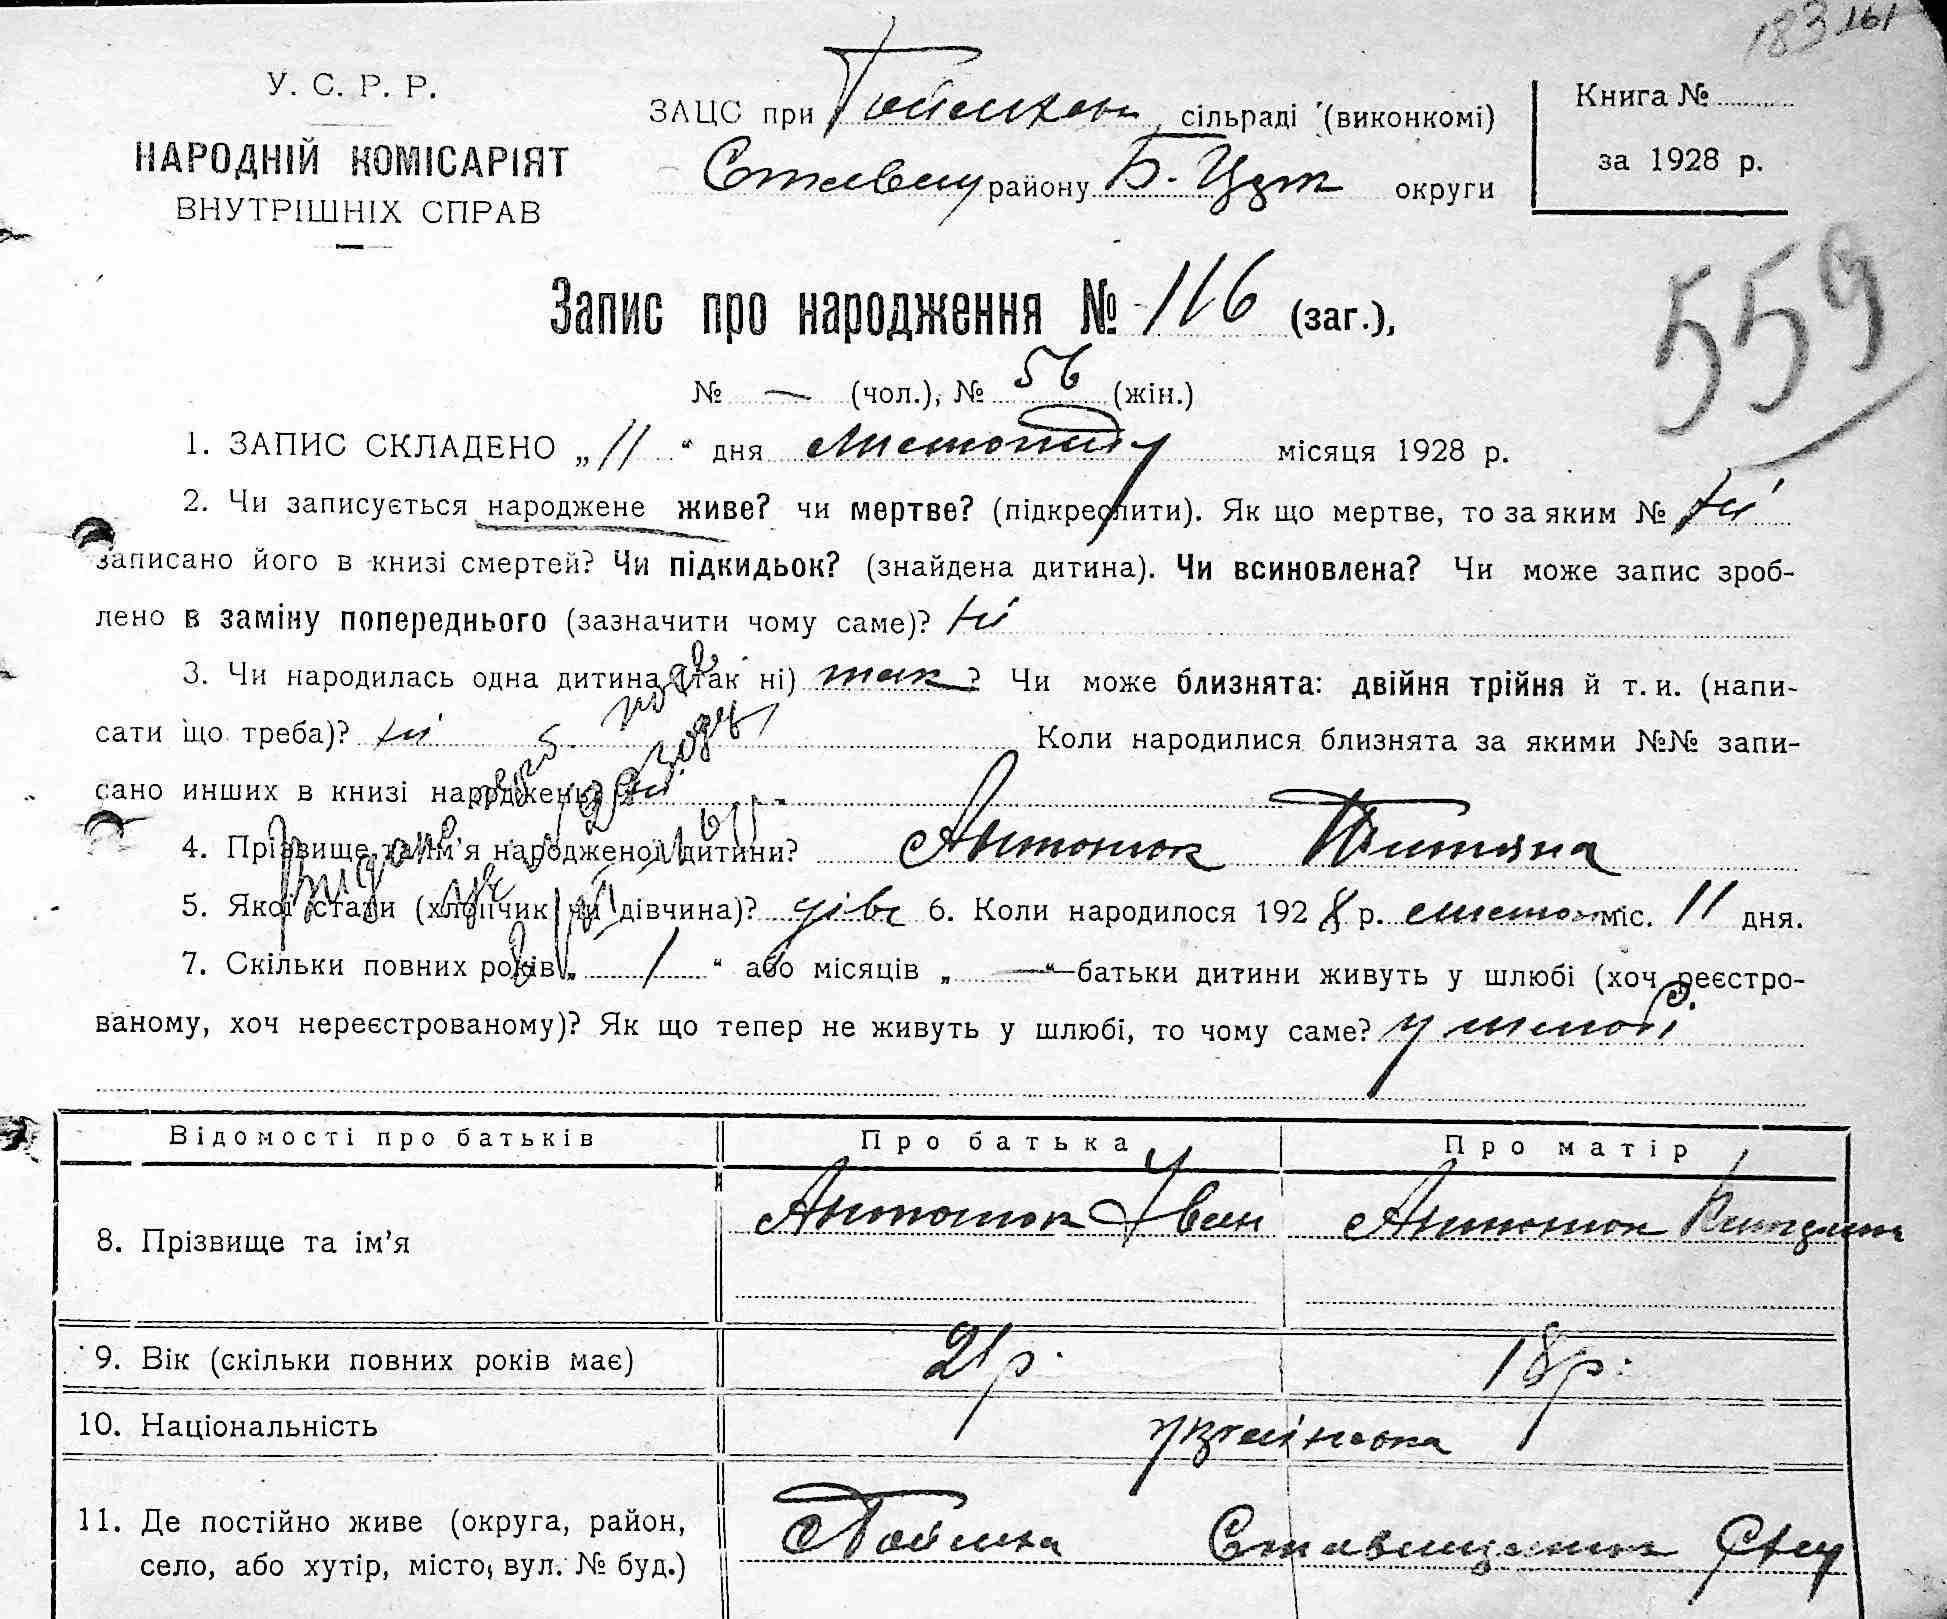 183 161
У. С. Р. Р.
НАРОДНІЙ КОМІСАРІЯТ
ВНУТРІШНІХ СПРАВ
ЗАЦС при сільраді (виконкомі)
району Б. Церк округи
Книга №
за 1928 р.
559
Запис про народження № 116 (заг.),
№ — (чол.), № 56 (жін.)
1. ЗАПИС СКЛАДЕНО „11“ дня листопаду місяця 1928 р.
2. Чи записується народжене живе? чи мертве? (підкреслити). Як що мертве, то за яким № ні
записано його в книзі смертей? Чи підкидьок? (знайдена дитина). Чи всиновлена? Чи може запис зроб-
лено в заміну попереднього (зазначити чому саме)? ні
3. Чи народилась одна дитина (так ні) так? Чи може близнята: двійня трійня й т. и. (напи-
сати що треба)? ні Коли народилися близнята за якими №№ запи-
сано инших в книзі народжень? ні
4. Прізвище та ім’я народженої дитини? Антонюк Титяна
5. Якої стати (хлопчик чи дівчина)? дівч 6. Коли народилося 1928 р. листоп міс. 11 дня.
7. Скільки повних років „ 1 “ або місяців „ — “ батьки дитини живуть у шлюбі (хоч реєстро-
ваному, хоч нереєстрованому)? Як що тепер не живуть у шлюбі, то чому саме? у шлюбі
Відомості про батьків Про батька Про матір
8. Прізвище та ім’я Антонюк Іван Антонюк
9. Вік (скільки повних років має) 21 р. 18 р.
10. Національність українська
11. Де постійно живе (округа, район,
село, або хутір, місто, вул. № буд.)